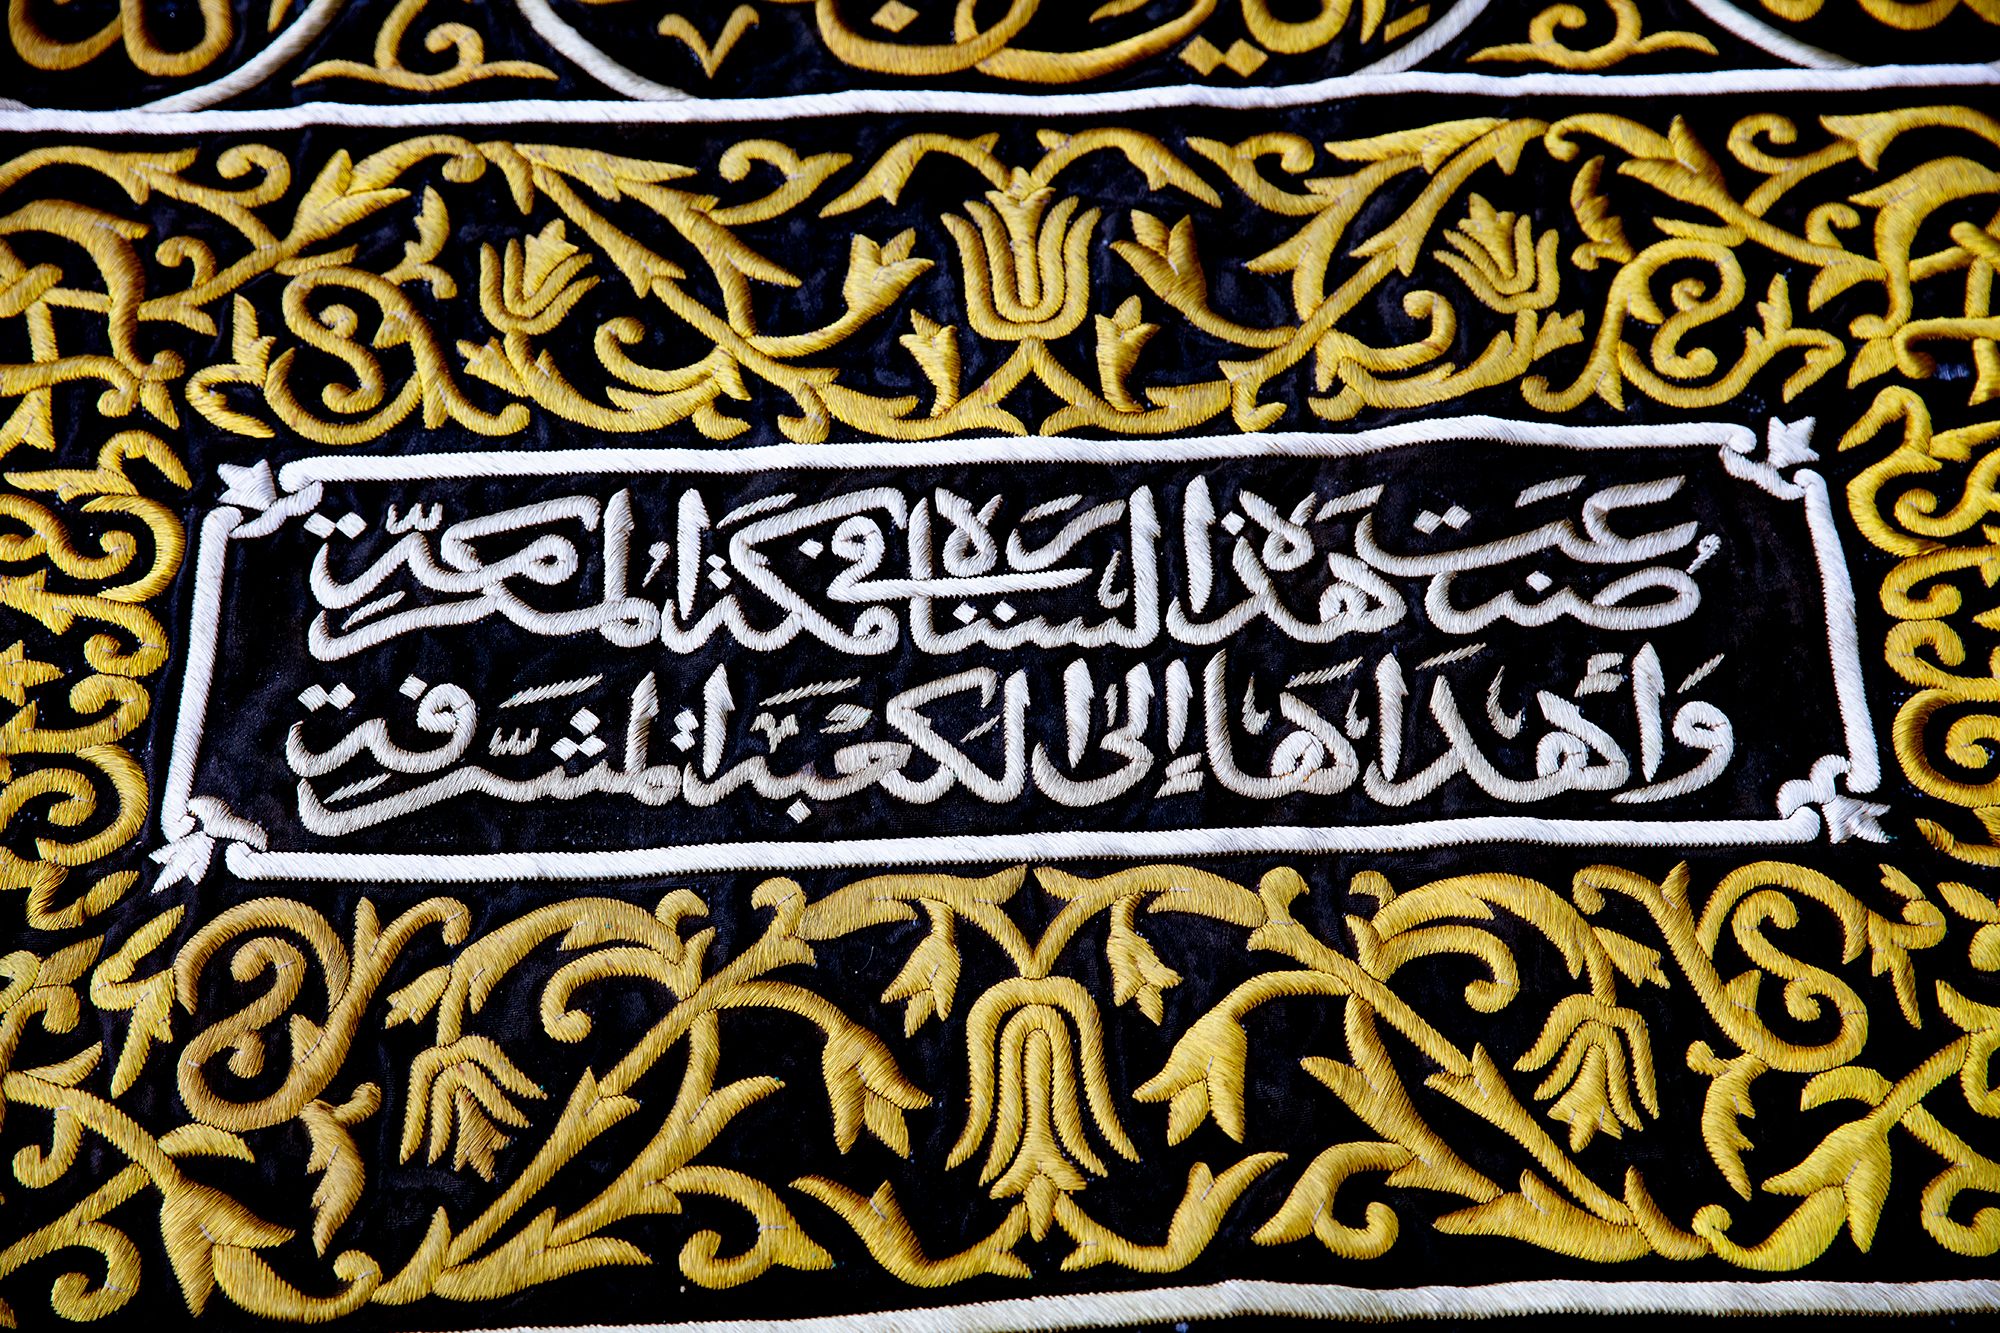 صُنعت هَذه السِّتَارَة في مكَّة المُكَرَّمَة
وَأهْدَاهَا إِلى الكَعْبَةِ المُشَرَّفَةِ